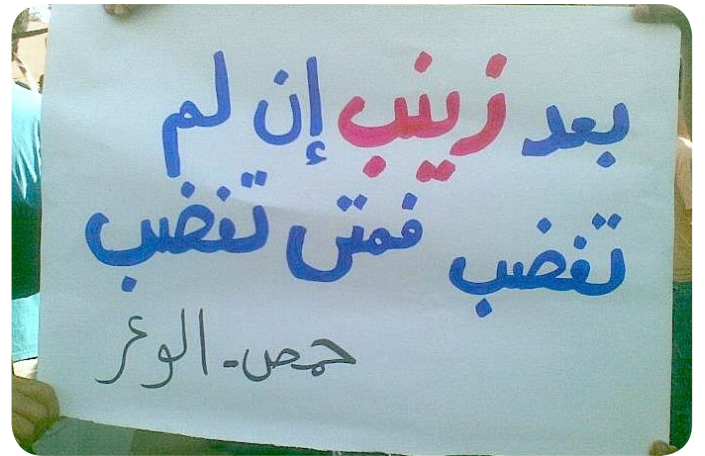 بعد زينب إن لم
تغضب فمتى تغضب
حمص - الوعر